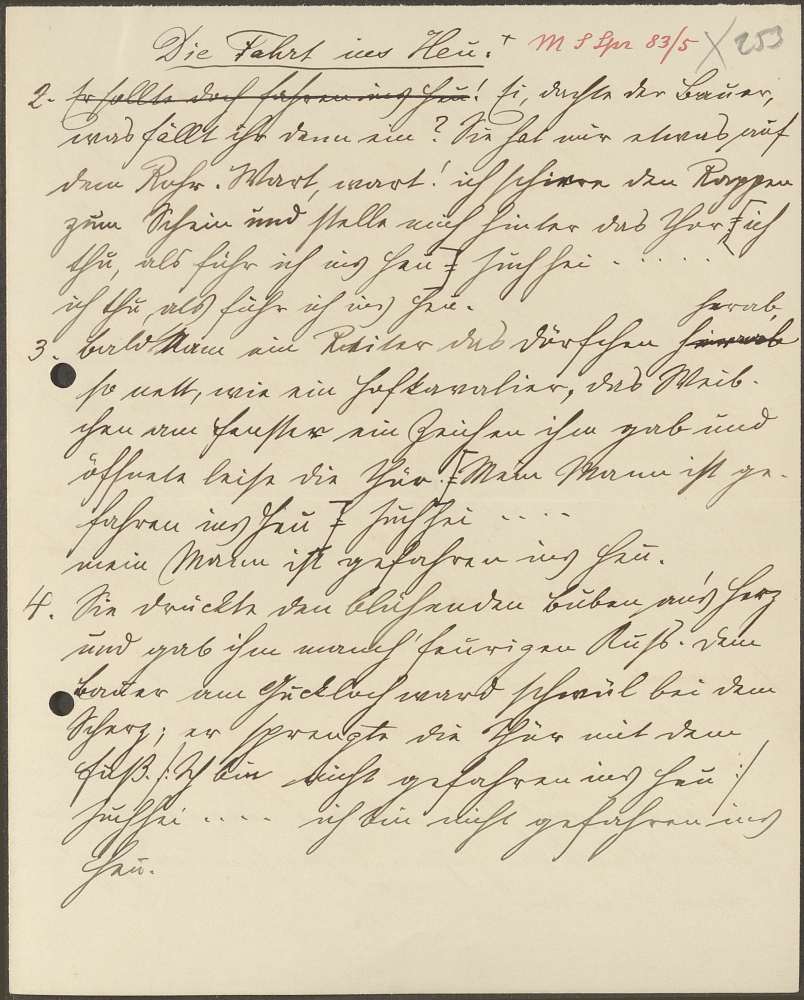 Die Fahrt ins Heu. + M S Spr 83/5 253
2. Er sollte doch fahren ins Heu! Ei, dachte der Bauer,
was fällt ihr denn ein? Sie hat mir etwas auf
dem Rohr. Wart, wart! ich schirre den Rappen
zum Schein und stelle mich hinter das Thor [: ich
thu, als führ ich ins Heu :] Juchhei . . . . .
ich thu, als führ ich ins Heu.
herab,
3. Bald kam ein Reiter das Dörfchen hinab
so nett, wie ein Hofkavalier, das Weib-
chen am Fenster ein Zeichen ihm gab und
öffnete leise die Thür. [: Mein Mann ist ge-
fahren ins Heu :] Juchhei . . . .
mein Mann ist gefahren ins Heu.
4. Sie drückte den blühenden Buben an's Herz
und gab ihm manch' feurigen Kuss. Dem
Bauer am Guckloch ward schwül bei dem
Scherz; er sprengte die Thür mit dem
Fuß. /: Ich bin nicht gefahren ins Heu :/
Juchhei . . . . ich bin nicht gefahren ins
Heu.